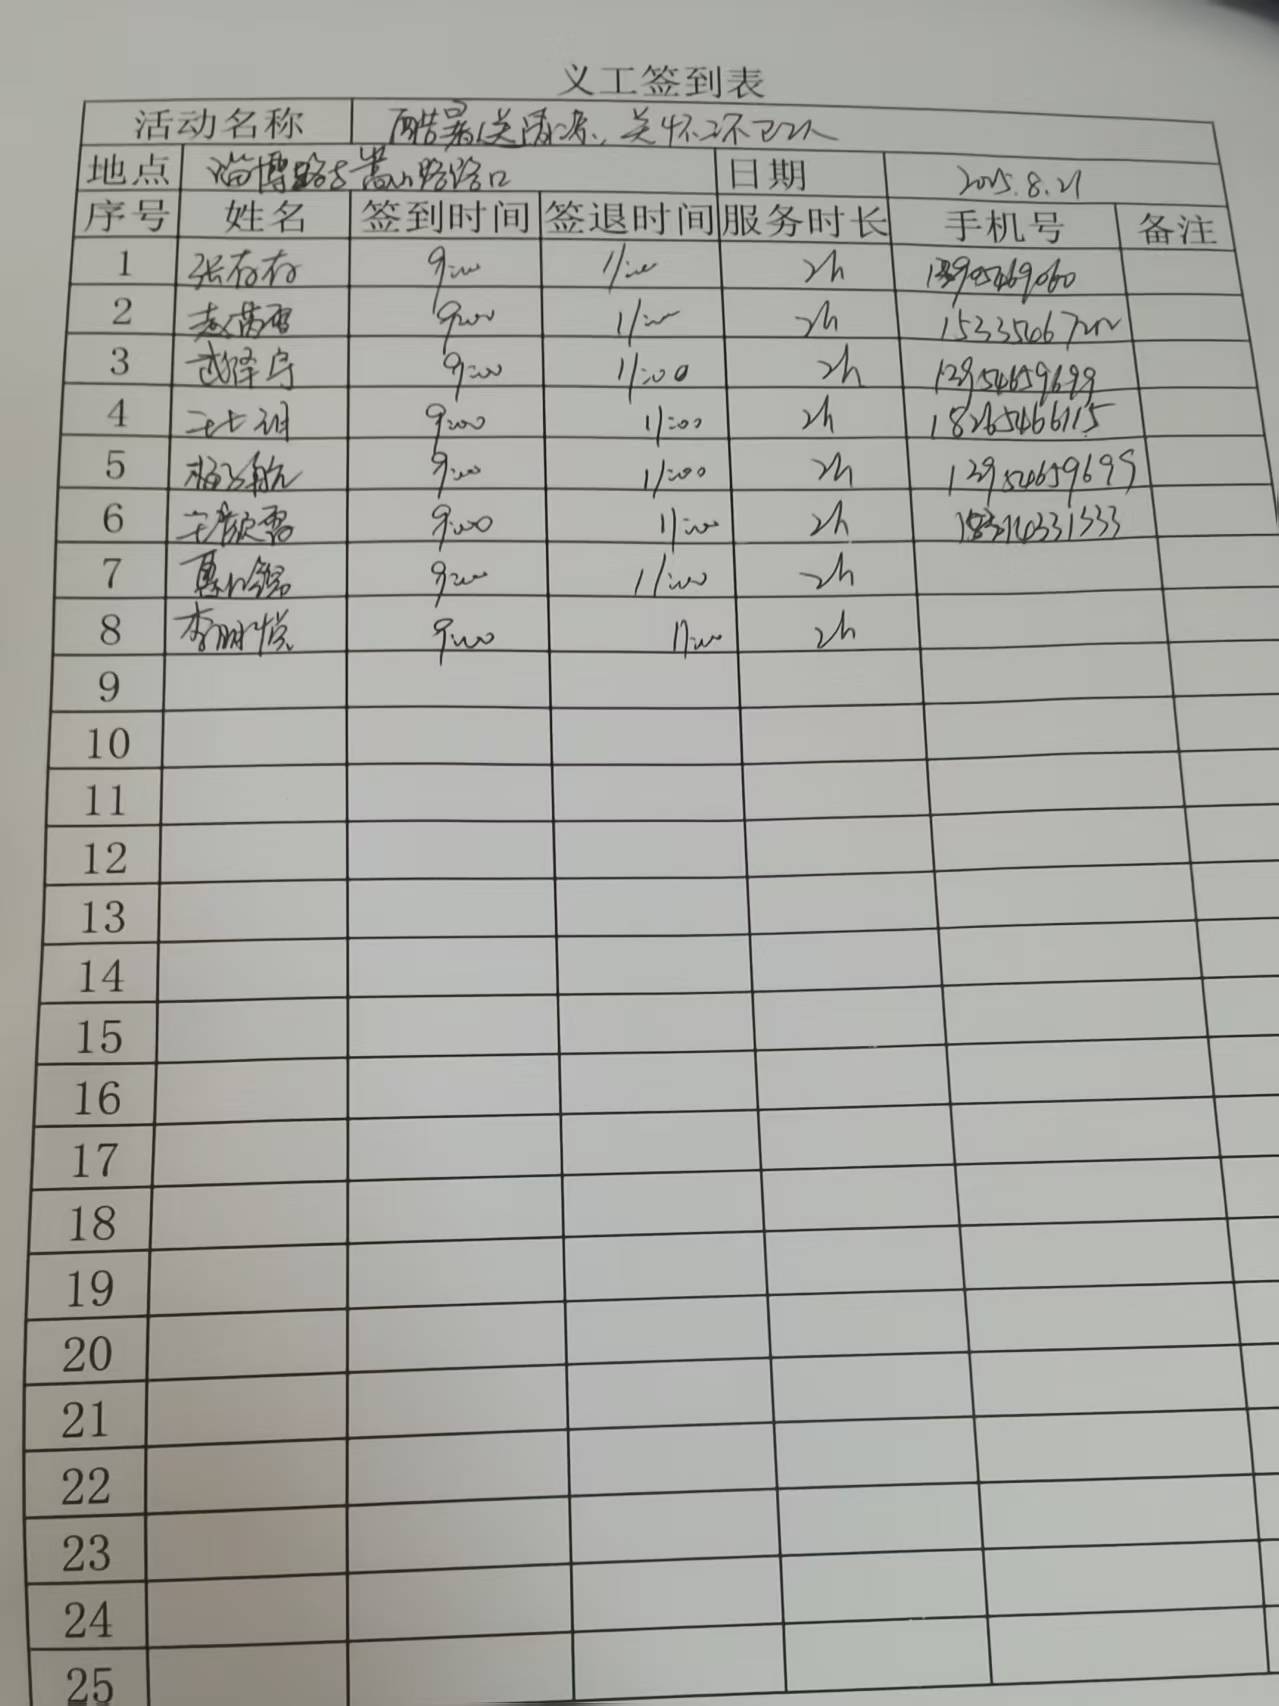 义工签到表
活动名称 酷暑送清凉、关怀环卫工人
地点 淄博路与嵩山路路口 日期 2025.8.21
序号 姓名 签到时间 签退时间 服务时长 手机号 备注
1 张存存 9:00 11:00 2h
2 9:00 11:00 2h
3 9:00 11:00 2h 13954659699
4 9:00 11:00 2h 18265466115
5 杨子航 9:00 11:00 2h 13954659699
6 9:00 11:00 2h
7 9:00 11:00 2h
8 李明悦 9:00 11:00 2h
9
10
11
12
13
14
15
16
17
18
19
20
21
22
23
24
25